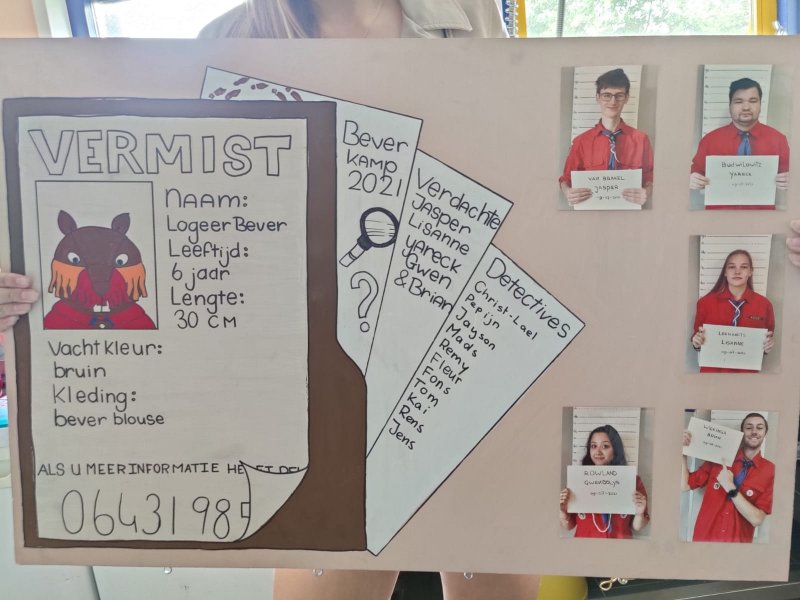 VERMIST
Naam:
LogeerBever
Leeftijd:
6 jaar
Lengte:
30 cm
Vachtkleur:
bruin
Kleding:
bever blouse
ALS U MEER INFORMATIE HEEFT
0643198
Bever
KAMP
2021
?
Verdachte
Jasper
Lisanne
Yareck
Gwen
& Brian
Detectives
Christ-Lael
Pepijn
Jayson
Mads
Remy
Fleur
Fons
Tom
Kai
Rens
Jens
JASPER
YARECK
LISANNE
ROWLAND
GWENDOLYN
BRIAN